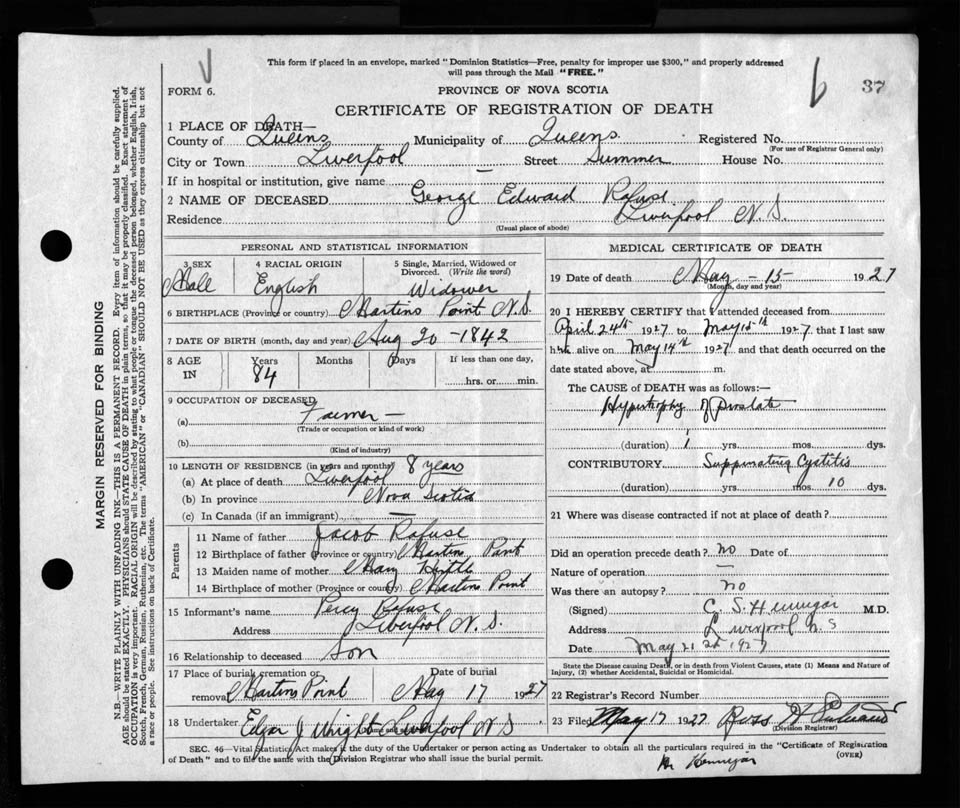 This form if placed in an envelope, marked "Dominion Statistics—Free, penalty for improper use $300," and properly addressed
will pass through the Mail "FREE."
FORM 6.
PROVINCE OF NOVA SCOTIA
37
CERTIFICATE OF REGISTRATION OF DEATH
1 PLACE OF DEATH—
County of Queens Municipality of Queens Registered No.
(For use of Registrar General only)
City or Town Liverpool Street Summer House No.
If in hospital or institution, give name —
2 NAME OF DECEASED George Edward Rafuse
Residence Liverpool N.S.
(Usual place of abode)
PERSONAL AND STATISTICAL INFORMATION
3 SEX 4 RACIAL ORIGIN 5 Single, Married, Widowed or
Divorced. (Write the word)
Male English Widower
6 BIRTHPLACE (Province or country) Martins Point N.S.
7 DATE OF BIRTH (month, day and year) Aug 20 - 1842
8 AGE Years Months Days If less than one day,
IN 84 hrs. or min.
9 OCCUPATION OF DECEASED
(a) Farmer —
(Trade or occupation or kind of work)
(b)
(Kind of industry)
10 LENGTH OF RESIDENCE (in years and months) 8 years
(a) At place of death Liverpool
(b) In province Nova Scotia
(c) In Canada (if an immigrant) —
Parents
11 Name of father Jacob Rafuse
12 Birthplace of father (Province or country) Martins Point
13 Maiden name of mother Mary Hirtle
14 Birthplace of mother (Province or country) Martins Point
15 Informant's name Percy Rafuse
Address Liverpool N.S.
16 Relationship to deceased Son
17 Place of burial, cremation or Date of burial
removal Martins Point May 17 1927
18 Undertaker Edgar J Wright Liverpool N S
MEDICAL CERTIFICATE OF DEATH
19 Date of death May - 15 - 1927
(Month, day and year)
20 I HEREBY CERTIFY that I attended deceased from
April 24th 1927 to May 15th 1927, that I last saw
him alive on May 14th 1927 and that death occurred on the
date stated above, at m.
The CAUSE OF DEATH was as follows:—
Hypertrophy of Prostate
(duration) 1 yrs. mos. dys.
CONTRIBUTORY Suppurating Cystitis
(duration) yrs. mos. 10 dys.
21 Where was disease contracted if not at place of death?
Did an operation precede death? no Date of
Nature of operation —
Was there an autopsy? no
(Signed) C. S. Hennigar M.D.
Address Liverpool N.S
Date May 21st 1927
State the Disease causing Death, or in death from Violent Causes, state (1) Means and Nature of
Injury, (2) whether Accidental, Suicidal or Homicidal.
22 Registrar's Record Number
23 Filed May 17 1927
(Division Registrar)
SEC. 46—Vital Statistics Act makes it the duty of the Undertaker or person acting as Undertaker to obtain all the particulars required in the "Certificate of Registration
of Death" and to file the same with the Division Registrar who shall issue the burial permit. (OVER)
Hennigar
MARGIN RESERVED FOR BINDING
N.B.—WRITE PLAINLY WITH UNFADING INK—THIS IS A PERMANENT RECORD. Every item of information should be carefully supplied.
AGE should be stated EXACTLY. PHYSICIANS should STATE CAUSE OF DEATH in plain terms, so that it may be properly classified. Exact statement of
OCCUPATION is very important. RACIAL ORIGIN will be described by stating to what people or tongue the deceased person belonged, whether English, Irish,
Scotch, French, German, Russian, Ruthenian, etc. The terms "AMERICAN" or "CANADIAN" SHOULD NOT BE USED as they express citizenship but not
a race or people. See instructions on back of Certificate.